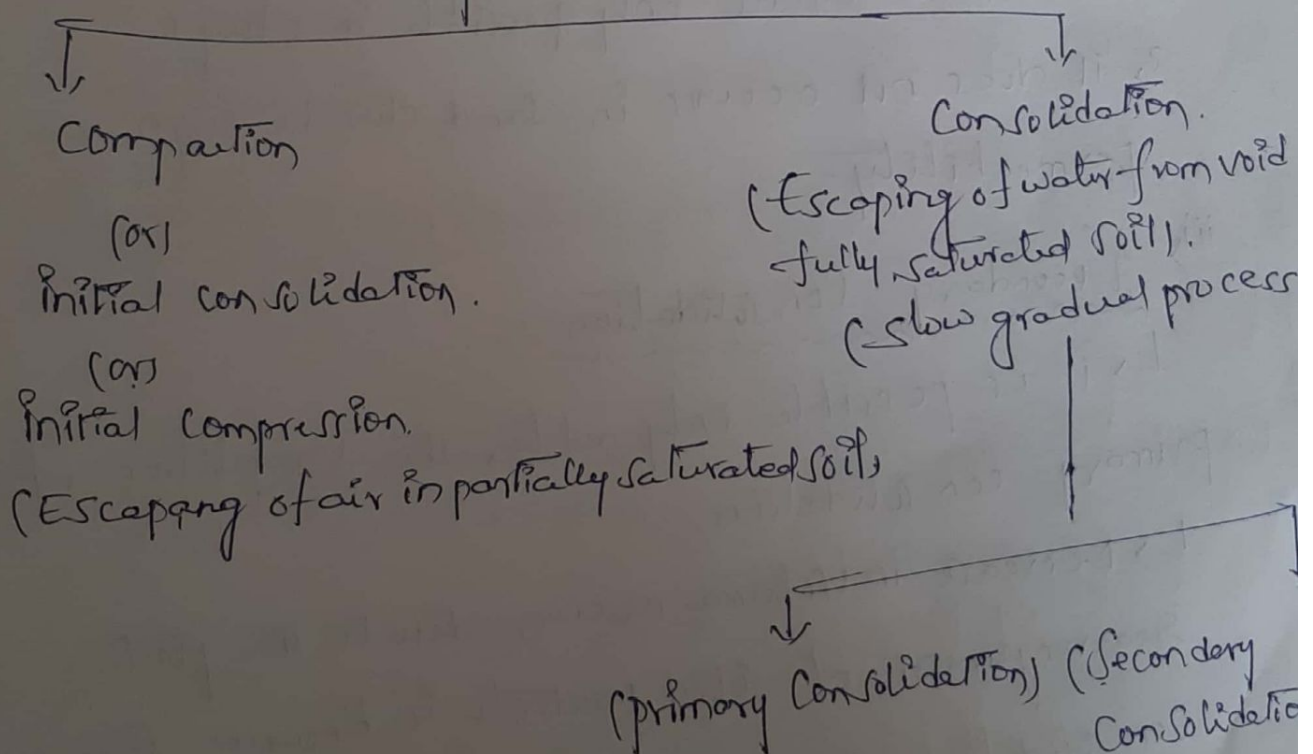 Compaction
(or)
initial consolidation.
(or)
initial compression.
(Escapang of air in partially saturated soil)
Consolidation.
(Escaping of water from void
fully saturated soil).
(slow gradual process
(primary Consolidation) (Secondary
Consolidatio